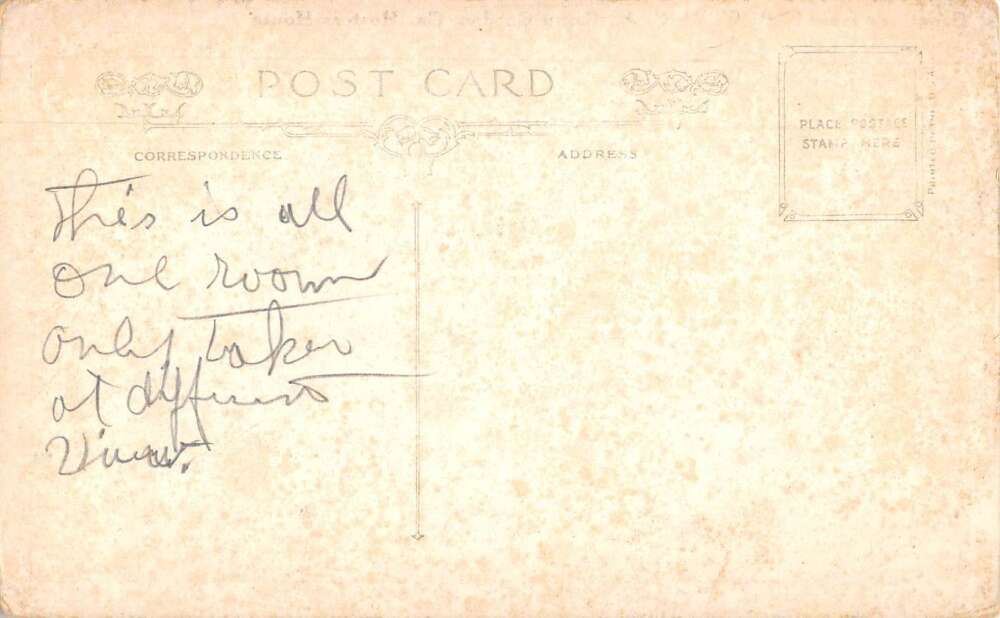 POST CARD
CORRESPONDENCE
ADDRESS
PLACE POSTAGE
STAMP HERE
This is all
one room
only taken
at different
views.